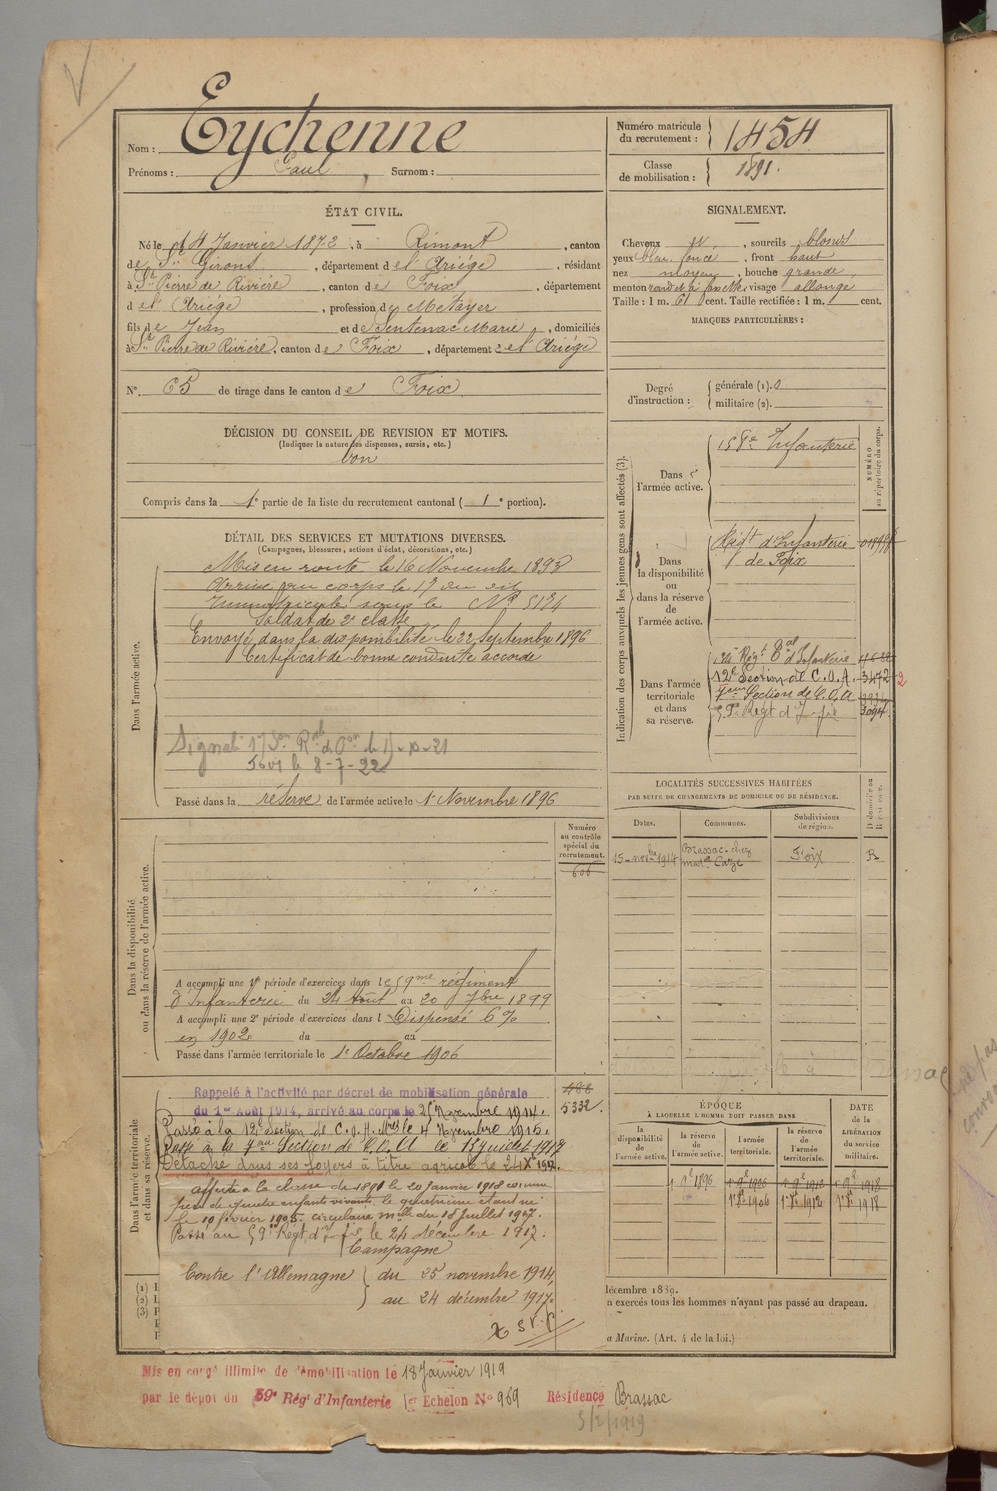 Nom : Eychenne
Prénoms : Paul, Surnom :
Numéro matricule du recrutement : 1454
Classe de mobilisation : 1891.
ÉTAT CIVIL.
Né le 14 Janvier 1872, à Rimont, canton
de St Girons, département de l'Ariége, résidant
à St Pierre de Rivière, canton de Foix, département
de l'Ariége, profession de Métayer
fils de Jean et de Sentenac Marie, domiciliés
à St Pierre de Rivière, canton de Foix, département de l'Ariége
N° 65 de tirage dans le canton de Foix
DÉCISION DU CONSEIL DE REVISION ET MOTIFS.
(Indiquer la nature des dispenses, sursis, etc.)
bon
Compris dans la 1e partie de la liste du recrutement cantonal ( 1e portion).
SIGNALEMENT.
Cheveux , sourcils blonds
yeux bleu foncé, front haut
nez moyen, bouche grande,
menton rond et à fossette, visage allongé
Taille : 1 m. 61 cent. Taille rectifiée : 1 m. cent.
MARQUES PARTICULIÈRES :
Degré d'instruction : générale (1). 0
militaire (2).
DÉTAIL DES SERVICES ET MUTATIONS DIVERSES.
(Campagnes, blessures, actions d'éclat, décorations, etc.)
Dans l'armée active.
Mis en route le 16 Novembre 1893
Arrivé au corps le 17 du dit
Immatriculé sous le No 5124
Soldat de 2e classe
Envoyé dans la disponibilité le 22 Septembre 1896
Certificat de bonne conduite accordé
Signal
8-7-22
Passé dans la réserve de l'armée active le 1r Novembre 1896
Indication des corps auxquels les jeunes gens sont affectés (3).
NUMÉRO au répertoire du corps.
Dans l'armée active.
158e Infanterie
Dans la disponibilité ou dans la réserve de l'armée active.
Régt d'Infanterie
de Foix
Dans l'armée territoriale et dans sa réserve.
Régt d'Infanterie
12e Section de C.O.A. 3472
Section de C.O.A
59e Régt d'Inf
LOCALITÉS SUCCESSIVES HABITÉES
PAR SUITE DE CHANGEMENTS DE DOMICILE OU DE RÉSIDENCE.
Dates. Communes. Subdivisions de région.
15 novbre 1914 Brassac chez Foix R
Numéro au contrôle spécial du recrutement.
606
Dans la disponibilité ou dans la réserve de l'armée active.
A accompli une 1re période d'exercices dans le 59me régiment
d'Infanterie du 24 Août au 20 7bre 1899
A accompli une 2e période d'exercices dans l Dispensé 6%
en 1902 du au
Passé dans l'armée territoriale le 1r Octobre 1906
Dans l'armée territoriale et dans sa réserve.
488
5332
Rappelé à l'activité par décret de mobilisation générale
du 1er Août 1914, arrivé au corps le 25 Novembre 1914.
Passé à la 12e Section de C.O.A. le 4 Novembre 1915.
Passé à la 7eme Section de C.O.A le 15 juillet 1917
Détaché dans ses foyers à titre agricole le 24 Xe 1917.
affecté à la classe de 1890 le 20 janvier 1918 comme
père de quatre enfants vivants, le quatrième étant né
le 10 février 1905. circulaire mlle du 15 juillet 1917.
Passé au 59e Régt d'Inf le 24 décembre 1917.
Campagne
Contre l'Allemagne du 25 novembre 1914,
au 24 décembre 1917.
ÉPOQUE
À LAQUELLE L'HOMME DOIT PASSER DANS
DATE DE LA LIBÉRATION du service militaire.
la disponibilité de l'armée active. la réserve de l'armée active. l'armée territoriale. la réserve de l'armée territoriale.
1 9e 1896 1 9e 1906 1 9e 1912 1 9e 1918
1r 8e 1906 1r 8e 1912 1r 8e 1918
(1) I
(2) L
(3) F
décembre 1889.
n exercés tous les hommes n'ayant pas passé au drapeau.
a Marine. (Art. 4 de la loi.)
Mis en congé illimité de démobilisation le 18 Janvier 1919
par le dépôt du 59e Régt d'Infanterie 1er Echelon N° 969 Résidence Brassac
3/2/1919